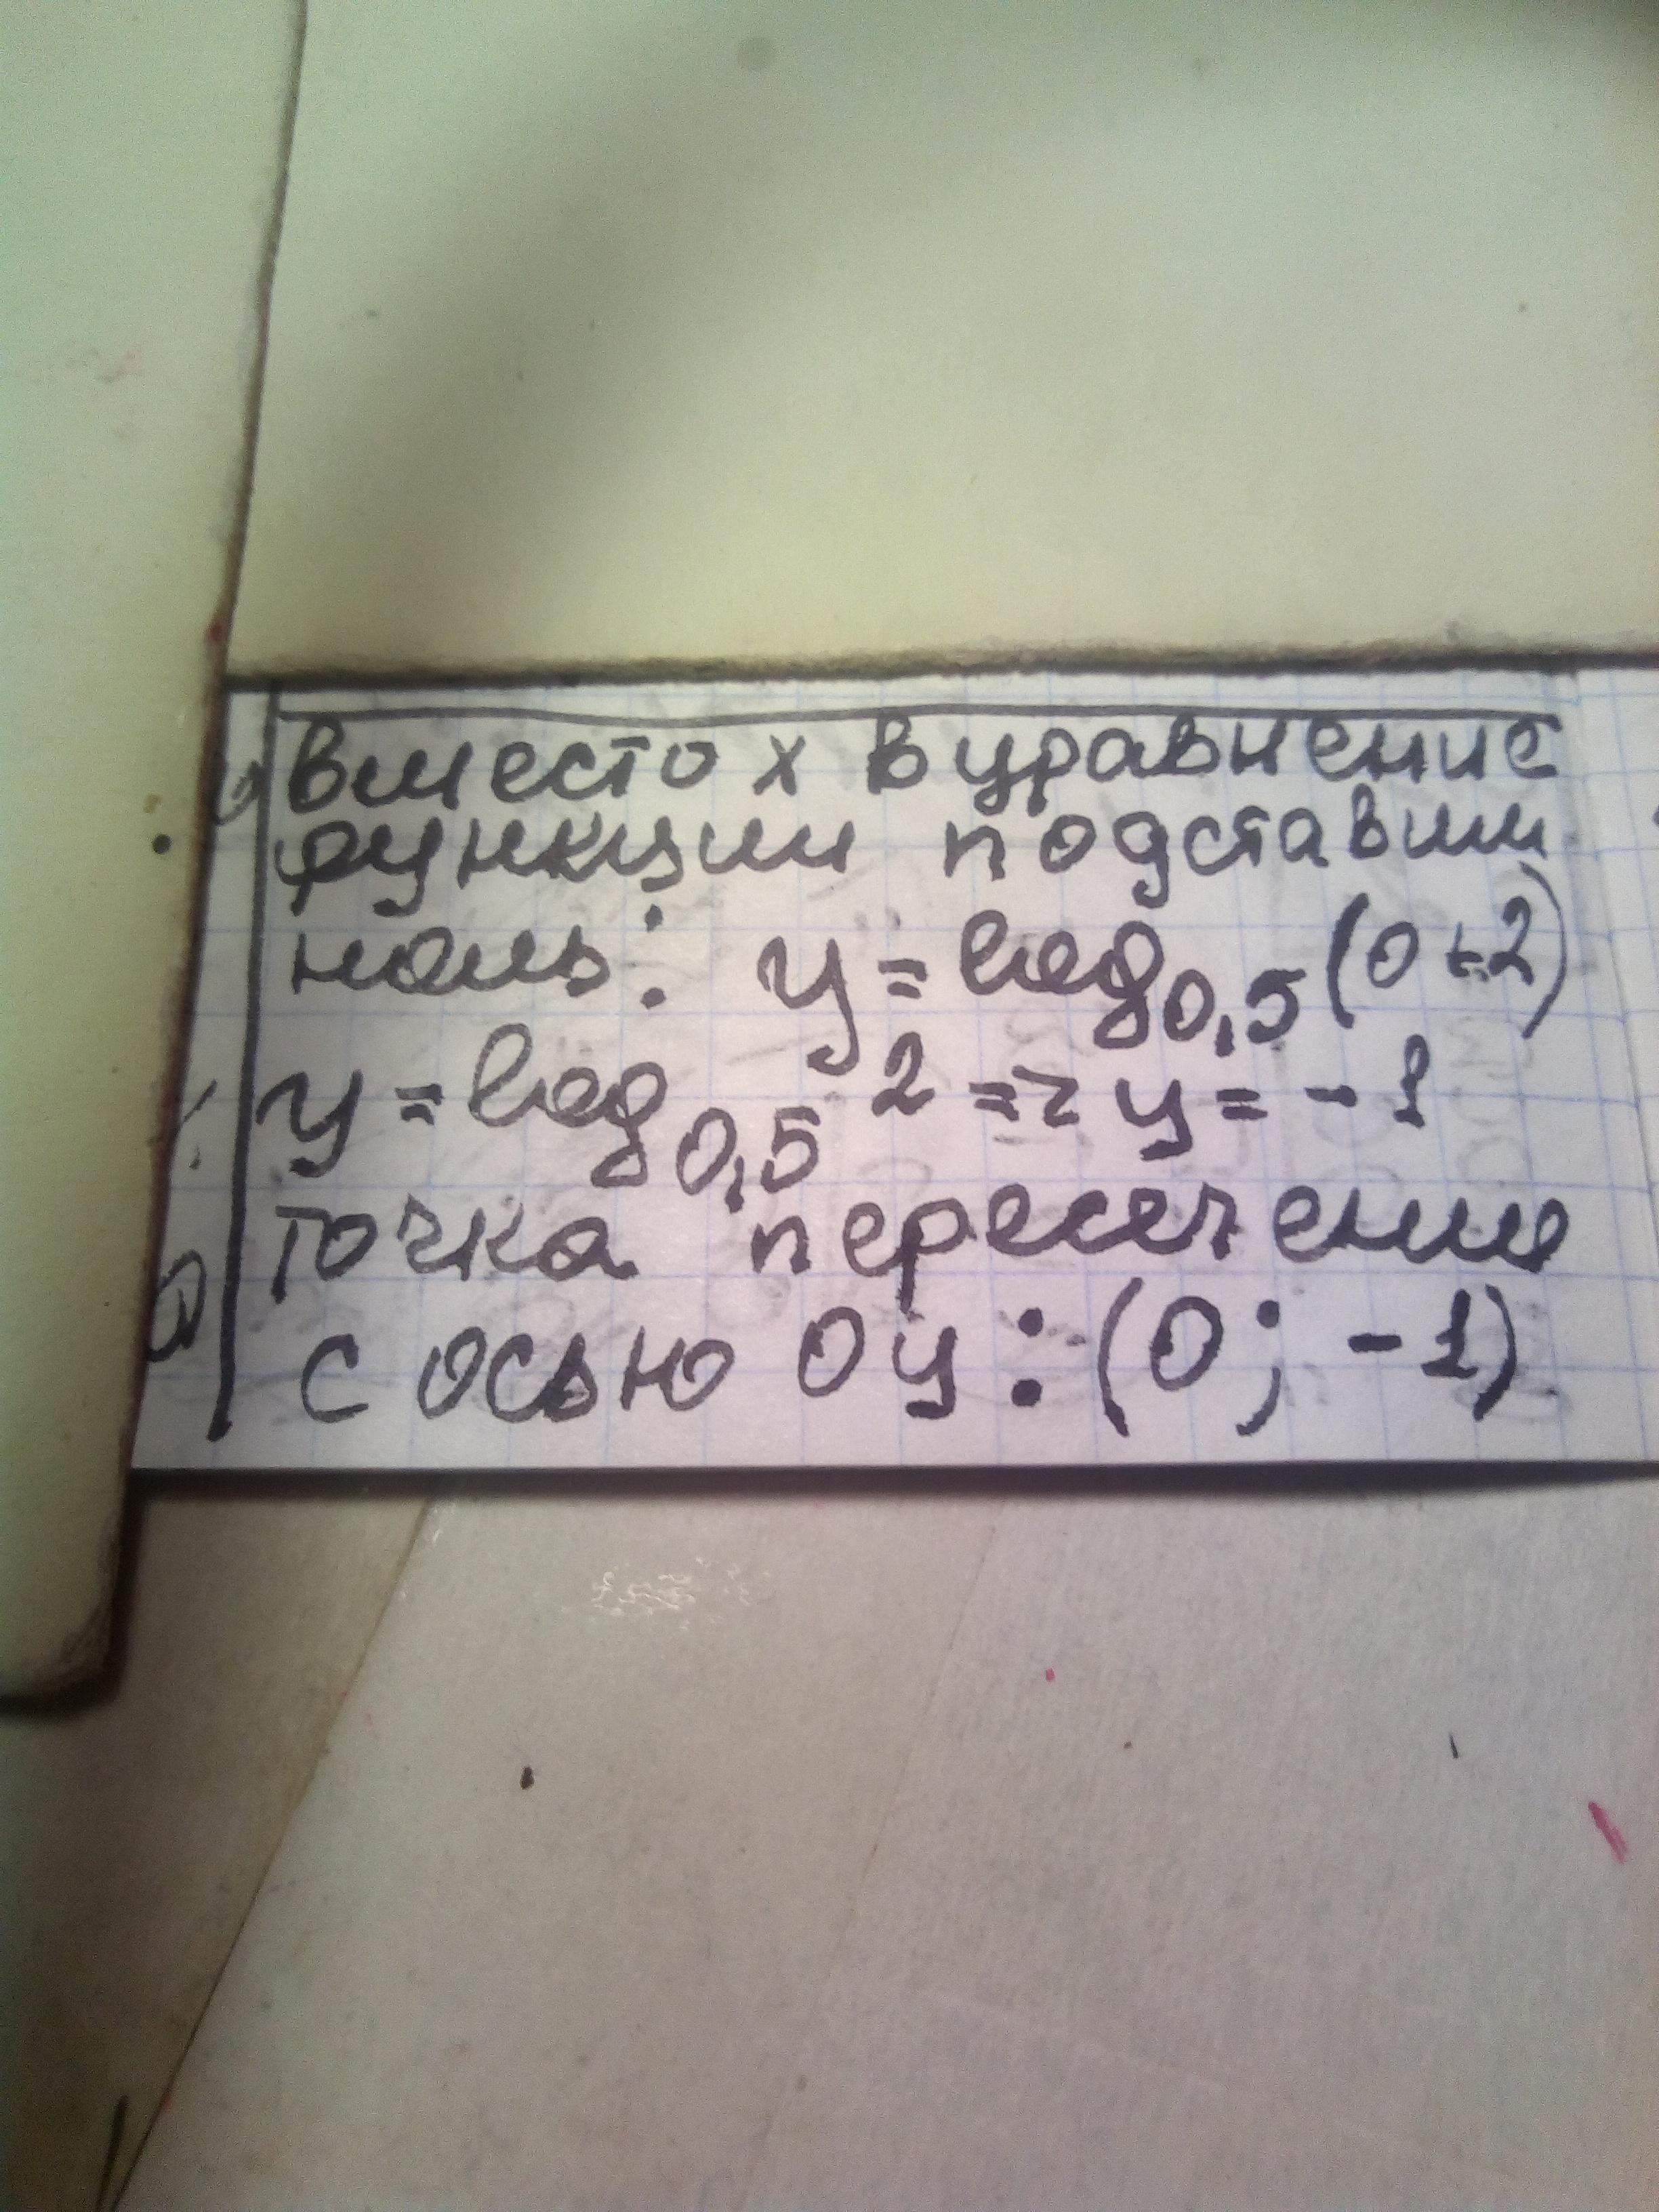 вместо х в уравнение
функции подставим
ноль: y = log0,5(0+2)
y = log0,5 2 => y = -1
точка пересечения
с осью Оу: (0; -1)